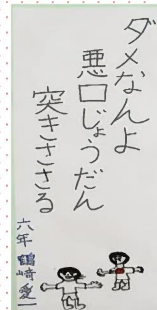 ダメなんよ
悪口じょうだん
突きささる
六年 鶴崎 愛一